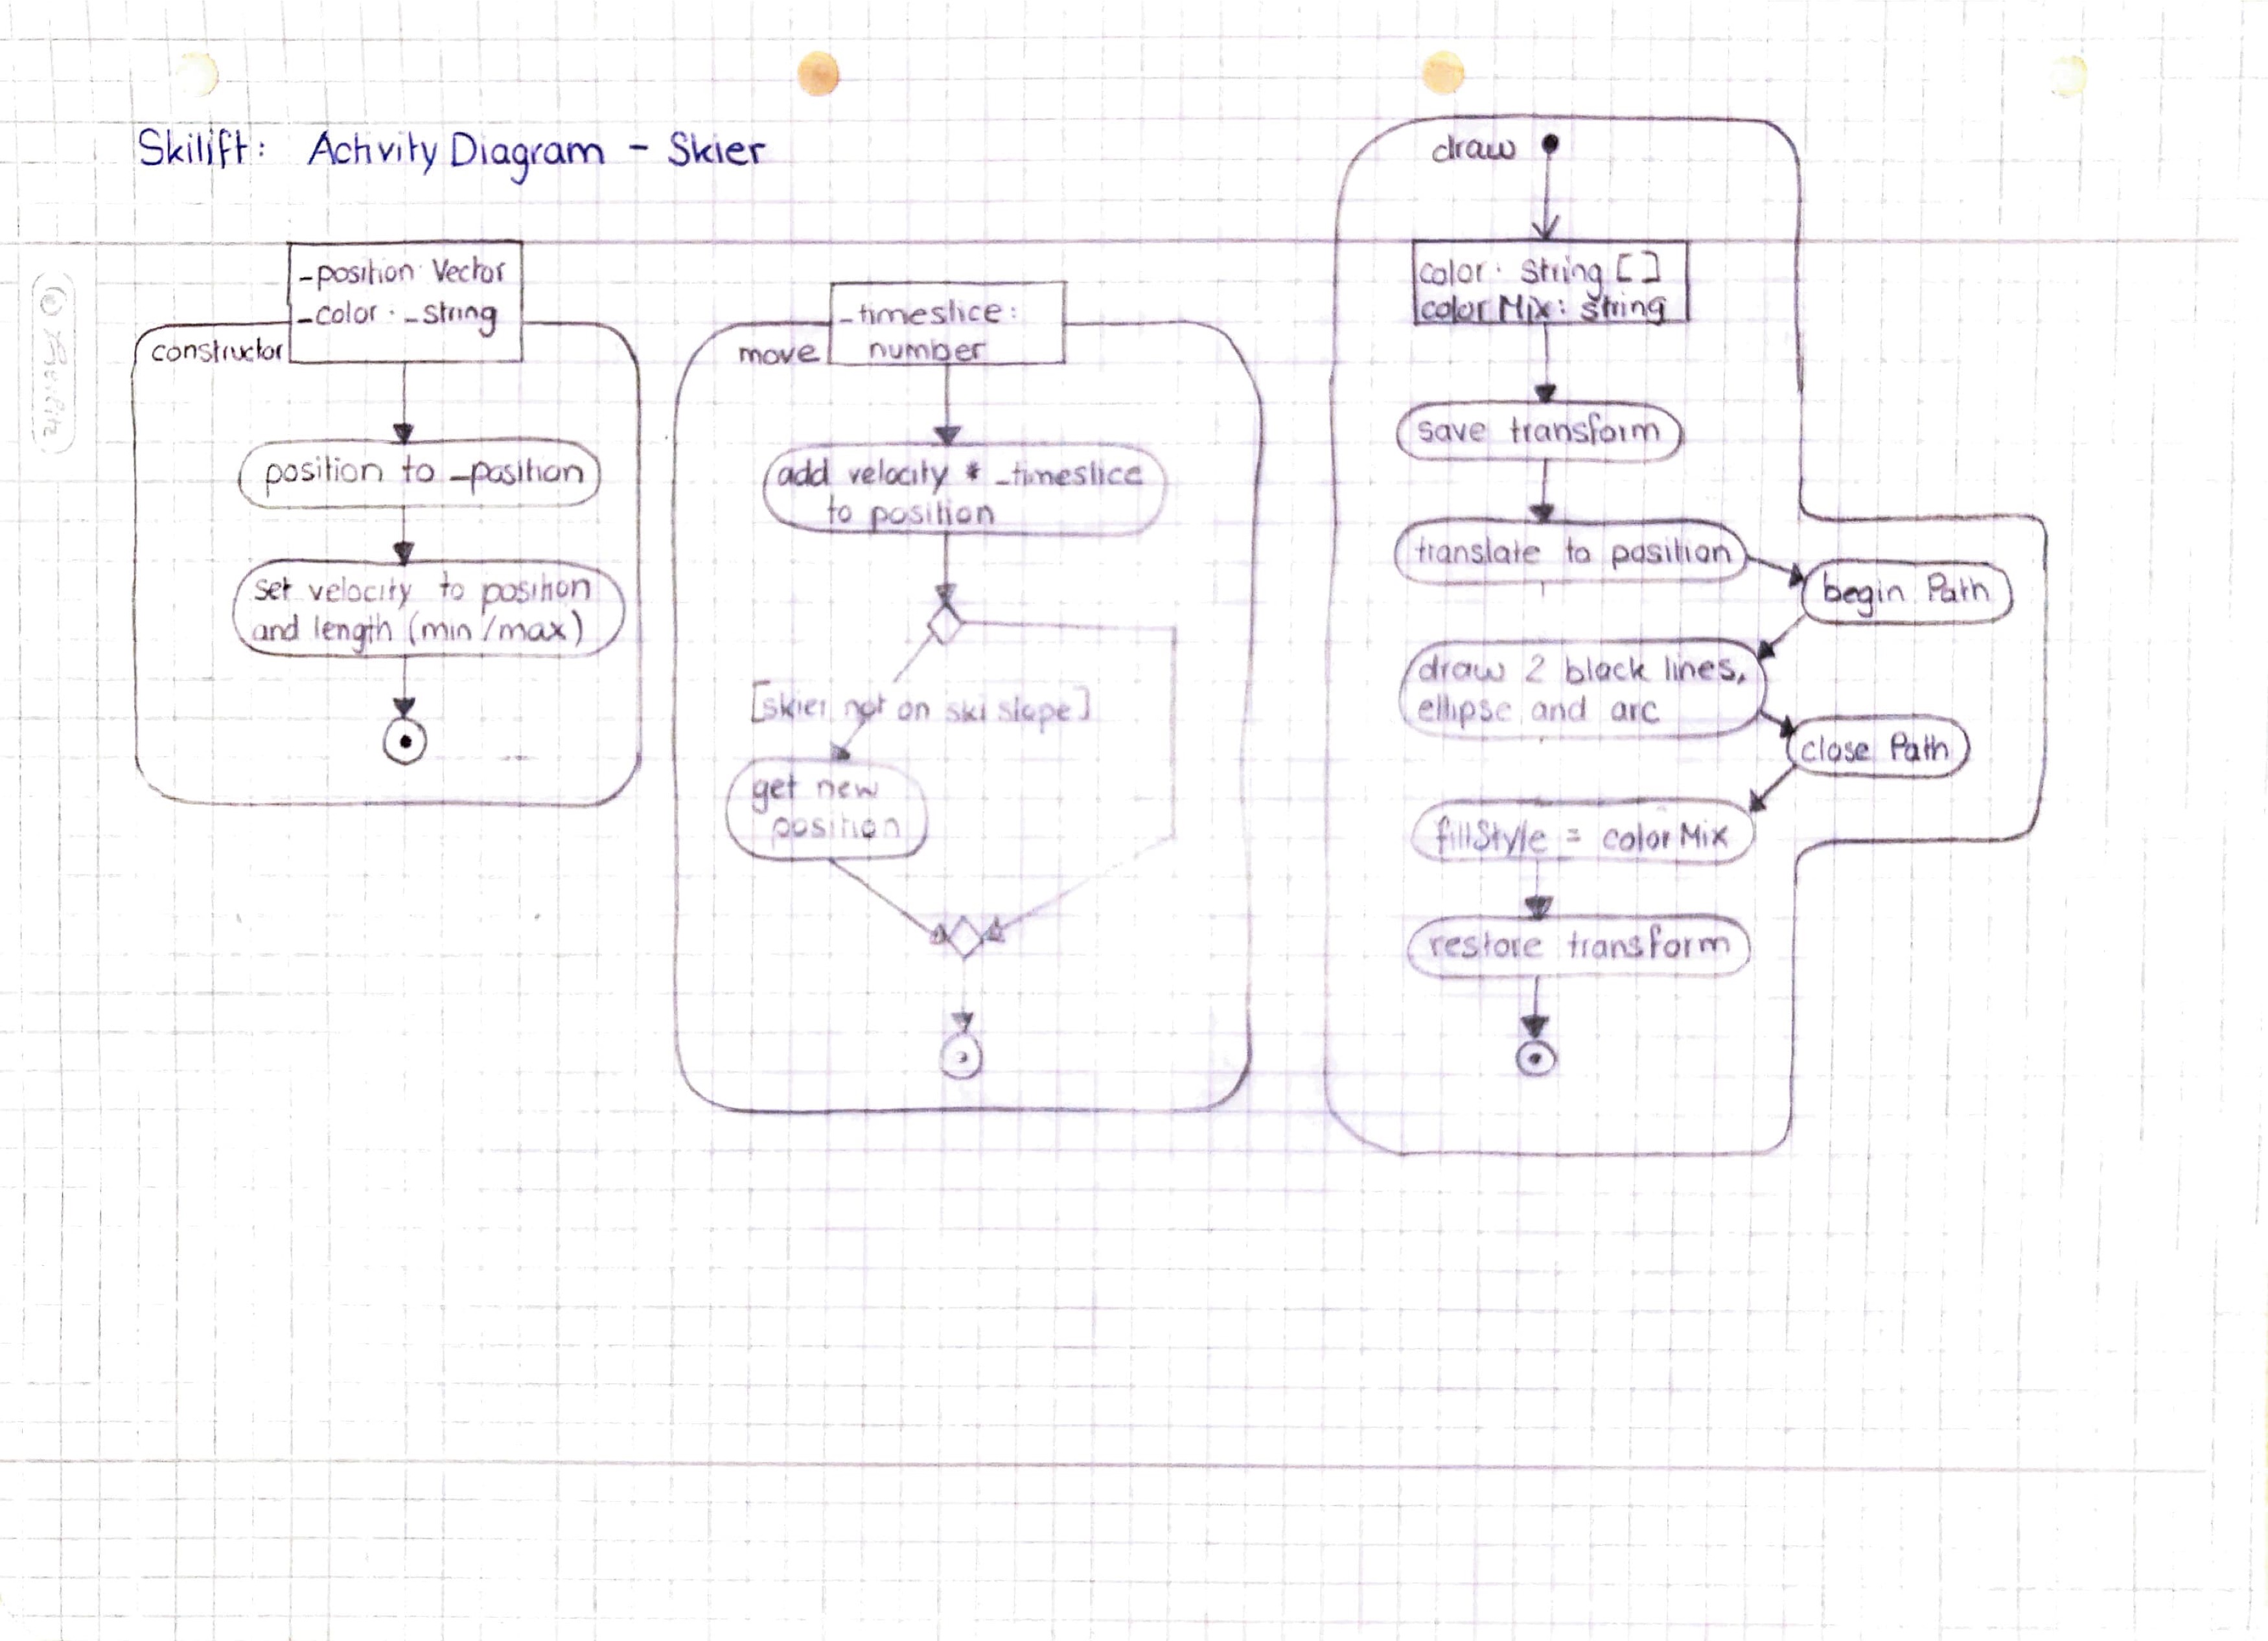 Skilift: Activity Diagram - Skier
_position: Vector
_color: _string
constructor
position to _position
set velocity to position
and length (min/max)
_timeslice:
number
move
add velocity * _timeslice
to position
[skier not on ski slope]
get new
position
draw
color: string []
colorMix: string
save transform
translate to position
begin Path
draw 2 black lines,
ellipse and arc
close Path
fillStyle = colorMix
restore transform